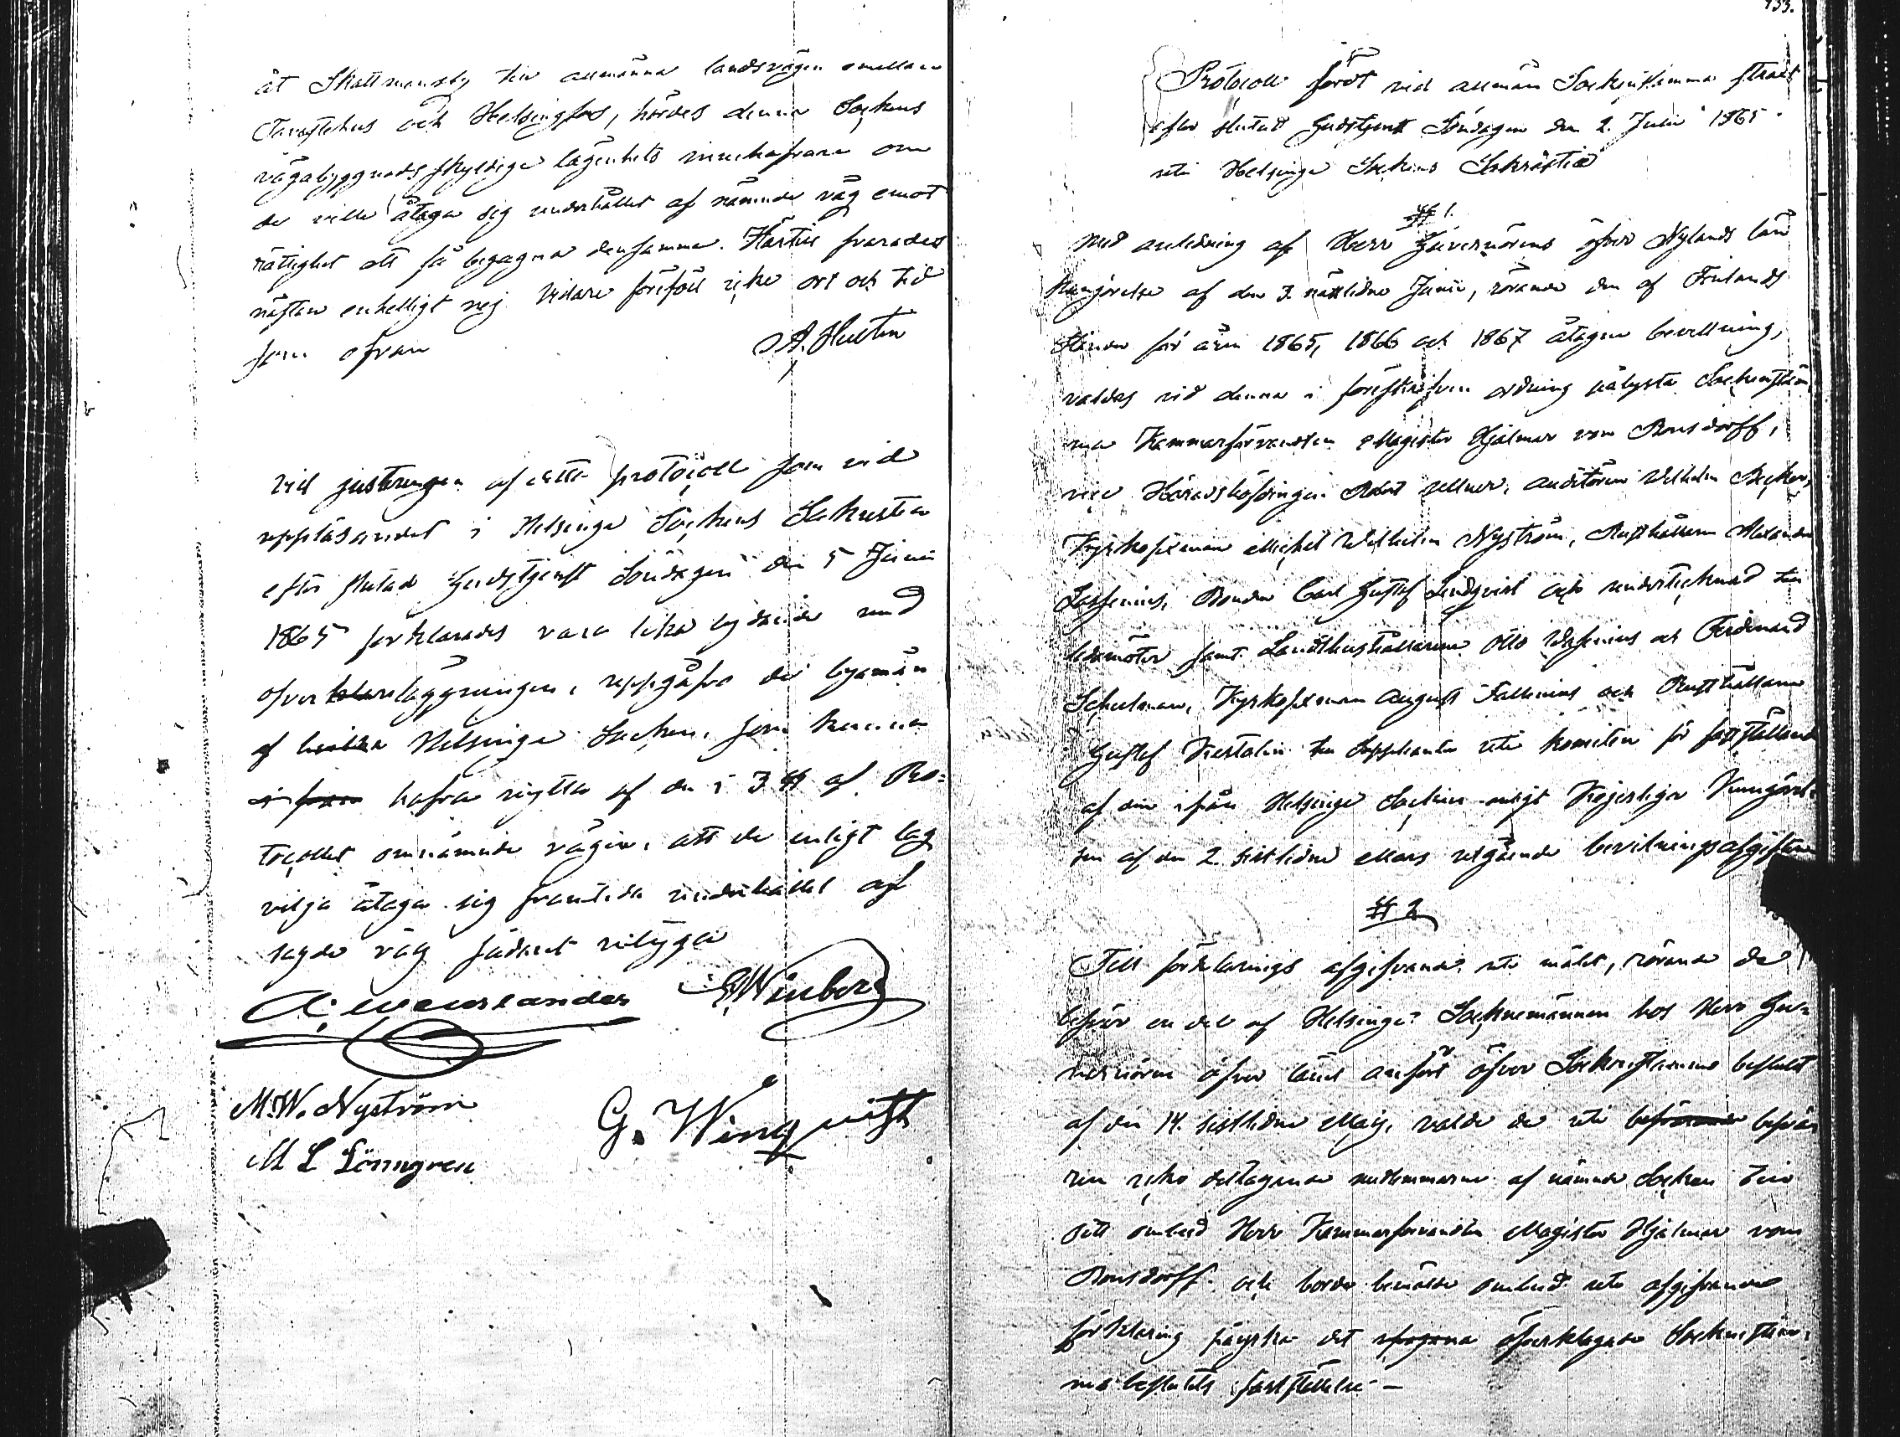 åt Skattmansby till allmänna landsvägen emellan
Tavastehus och Helsingfors, hördes denna Sockens
vägabyggnads skyldige lägenhets innehafvare om
de ville åtaga sig underhållet af nämnde väg emot
rättighet att få begagna densamma. Härtill svarades
nästan enhelligt nej. Vidare förefôll icke ort och tid
som ofvan
A. Hultin
Vid justeringen af detta protocoll som vid
uppläsandet i Helsinge Sockens Sakristia
efter slutad Gudstjenst Söndagen den 5 Juni
1865 förklarades vara lika lydande med
öfverläggningen, uppgåfvo de byamän
af Helsinge Socken, som kunna
hafva nytta af den i 3 § af Pro-
tocollet omnämnde vägen, att de enligt lag
vilja åtaga sig framtida underhållet af
sagde väg sådant intyga
A. Weurlander E W Winberg
M. W. Nyström
G. Winqvist
M L Lönngren
133.
Protocoll fördt vid allmän Sockenstämma straxt
efter slutad Gudstjenst Söndagen den 2. Julii 1865
uti Helsinge Sockens Sakristia
§ 1.
Med anledning af Herr Guvernörens öfver Nylands län
kungörelse af den 3. nästlidne Junii, rörande den af Finlands
Ständer för åren 1865, 1866 och 1867 åtagne bevillning,
valdes vid denna i föreskrifven ordning pålysta Sockenstäm
ma Kammarförvandten Magister Hjalmar von Bonsdorff,
vice Häradshöfdingen Robert auditören Wilhelm Becker,
Kyrkoföreståndaren Michel Wilhelm Nyström, Rusthållaren Alexander
Bonden Carl Gustaf Lindqvist och undertecknad till
ledamöter samt Landthushållaren Otto och Ferdinand
Schulman, August och Rusthållaren
Gustaf till Suppleanter uti komitén för fastställande
af den ifrån Helsinge Socken enligt Kejserliga Kungörel-
sen af den 2 sistlidne Mars utgående bevillningsafgiften
§ 2
Till förklarings afgifvande uti målet, rörande de
besvär en del af Helsinge Sockenmännen hos Herr Gu-
vernören öfver länet anfört öfver Sockenstämmo beslutet
af den 14. sistlidne Maji, valde de uti besvä
ren icke deltagande medlemmarne af nämnde Socken till
sitt ombud Herr Kammarförvandten Magister Hjalmar von
Bonsdorff. och borde bemälde ombud uti afgifvande
förklaring påyrka det öfverklagade Sockenstäm-
mo beslutets fastställelse –